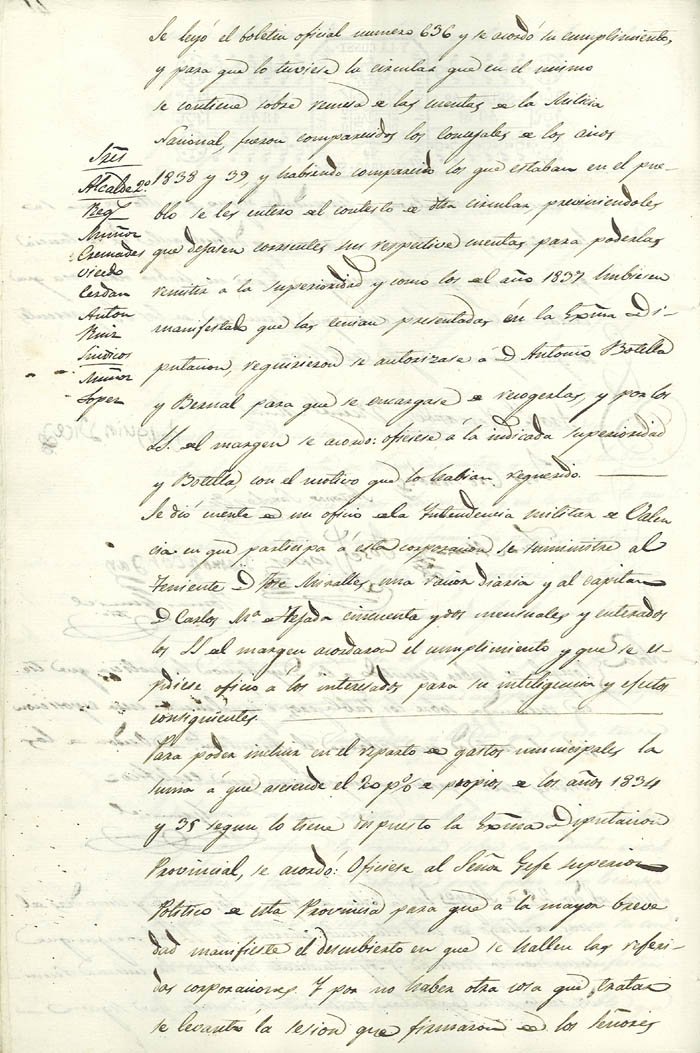 Se leyó el boletin oficial numero 636 y se acordó su cumplimiento,
y para que lo tuviese la circular que en el mismo
se contiene sobre remesa de las cuentas de la Milicia
Nacional, fueron comparecidos los concejales de los años
1838 y 39, y habiendo comparecido los que estaban en el pue-
blo se les entero del contesto de dha circular, previniendoles
que dejasen corrientes sus respective cuentas para poderlas
remitir á la superioridad y como los del año 1837 hubiesen
manifestado que las tenian presentadas en la Exma Di-
putacion, requirieron se autorizase á D Antonio Botella
y Bernal para que se encargase de recogerlas, y por los
SS. del margen se acordo: oficiese á la indicada superioridad
y Botella, con el motivo que lo habian requerido.
Se dió cuenta de un oficio de la Intendencia militar de Valen
cia en que participa á esta corporacion se suministre al
Teniente D Jose Miralles, una racion diaria y al capitan
D Carlos Mª de Tejada cincuenta y dos mensuales y enterados
los SS del margen acordaron el cumplimiento y que se es-
pidiese oficio á los interesados para su inteligencia y efectos
consiguientes.
Para poder incluir en el reparto de gastos municipales la
suma á que asciende el 20 p% de propios de los años 1834
y 35 segun lo tiene dispuesto la Exma Diputacion
Provincial, se acordó: Oficiese al Señor Gefe superior
Politico de esta Provincia para que á la mayor breve
dad manifieste el descubierto en que se hallen las referi-
das corporaciones. Y por no haber otra cosa que tratar
se levantó la sesion que firmaron de los Señores
Sres
Alcalde 2º
Reg
Muñoz
Cremades
Oviedo
Cerdan
Anton
Ruiz
Sindicos
Muñoz
Lopez